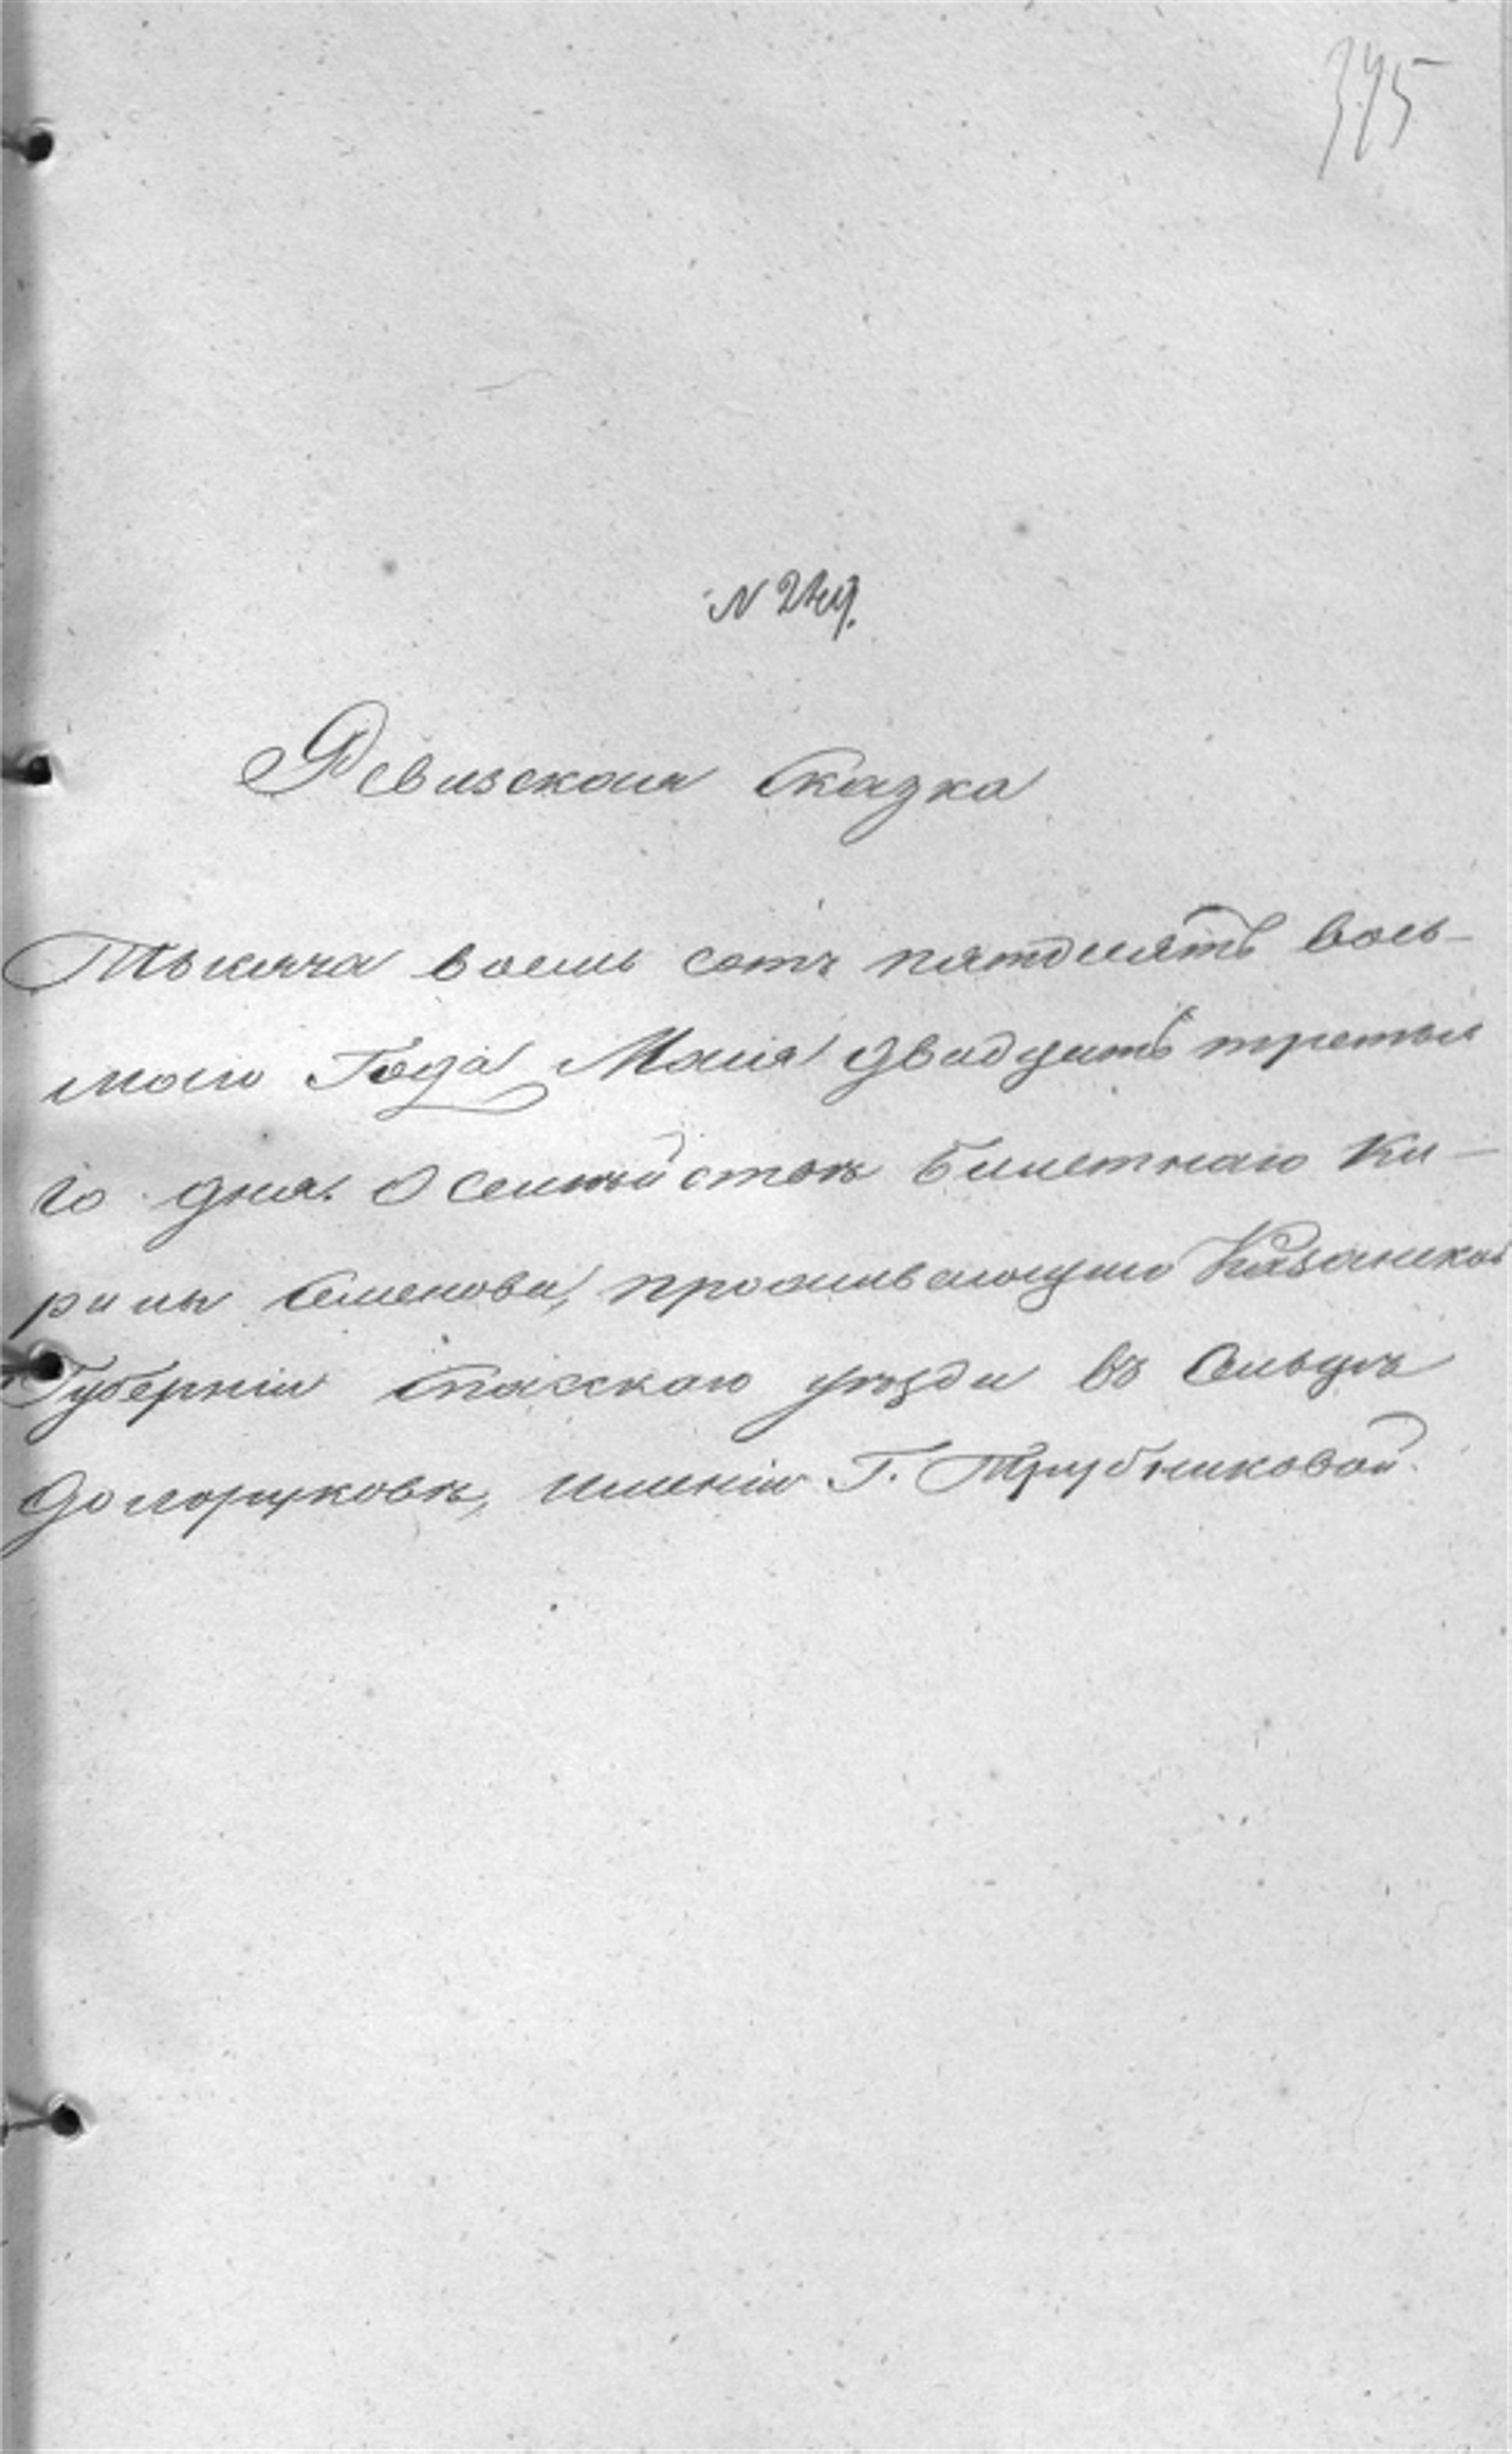 Ревизская Сказка
Тысяча восемь сотъ пятдесятъ вось-
маго Года Маія двадцать третья
го дня. О Семействѣ билетнаго Ки-
рилы Семенова, проживающаго Казанской
Губерніи Спасскаго уѣзда въ Сельцѣ
Долгоруковѣ, имѣніи Г. Трубниковой.